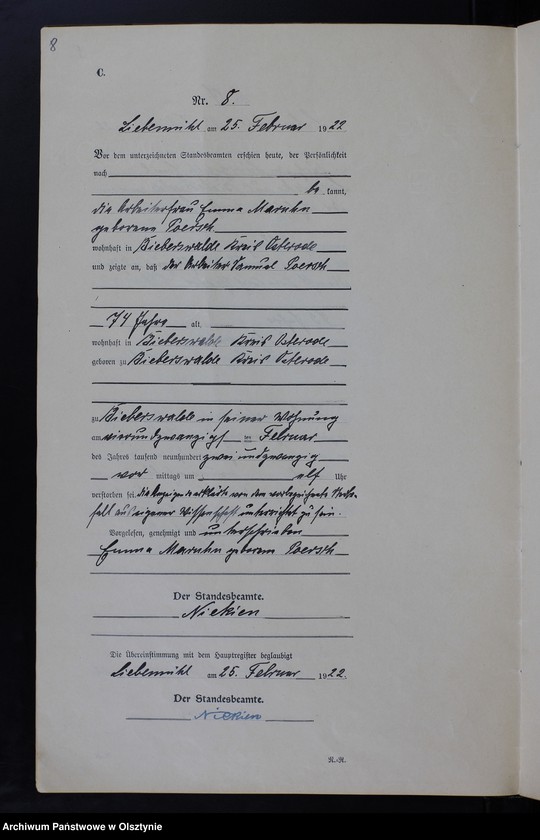 8
C.
Nr. 8.
Liebemühl am 25. Februar 1922
Vor dem unterzeichneten Standesbeamten erschien heute, der Persönlichkeit
nach
be kannt,
die Arbeiterfrau Emma Maruhn
geborene Poersch
wohnhaft in Bieberswalde Kreis Osterode
und zeigte an, daß der Arbeiter Samuel Poersch
74 Jahre alt,
wohnhaft in Bieberswalde Kreis Osterode
geboren zu Bieberswalde Kreis Osterode
zu Bieberswalde in seiner Wohnung
am vierundzwanzigst ten Februar
des Jahres tausend neunhundert zweiundzwanzig
vor mittags um elf Uhr
verstorben sei. Die Anzeigende erklärte von dem Sterbe-
fall aus eigener Wissenschaft unterrichtet zu sein.
Vorgelesen, genehmigt und unterschrieben
Emma Maruhn geborene Poersch
Der Standesbeamte.
Niekien
Die Übereinstimmung mit dem Hauptregister beglaubigt
Liebemühl am 25. Februar 1922.
Der Standesbeamte.
Niekien
R.-R.
Archiwum Państwowe w Olsztynie